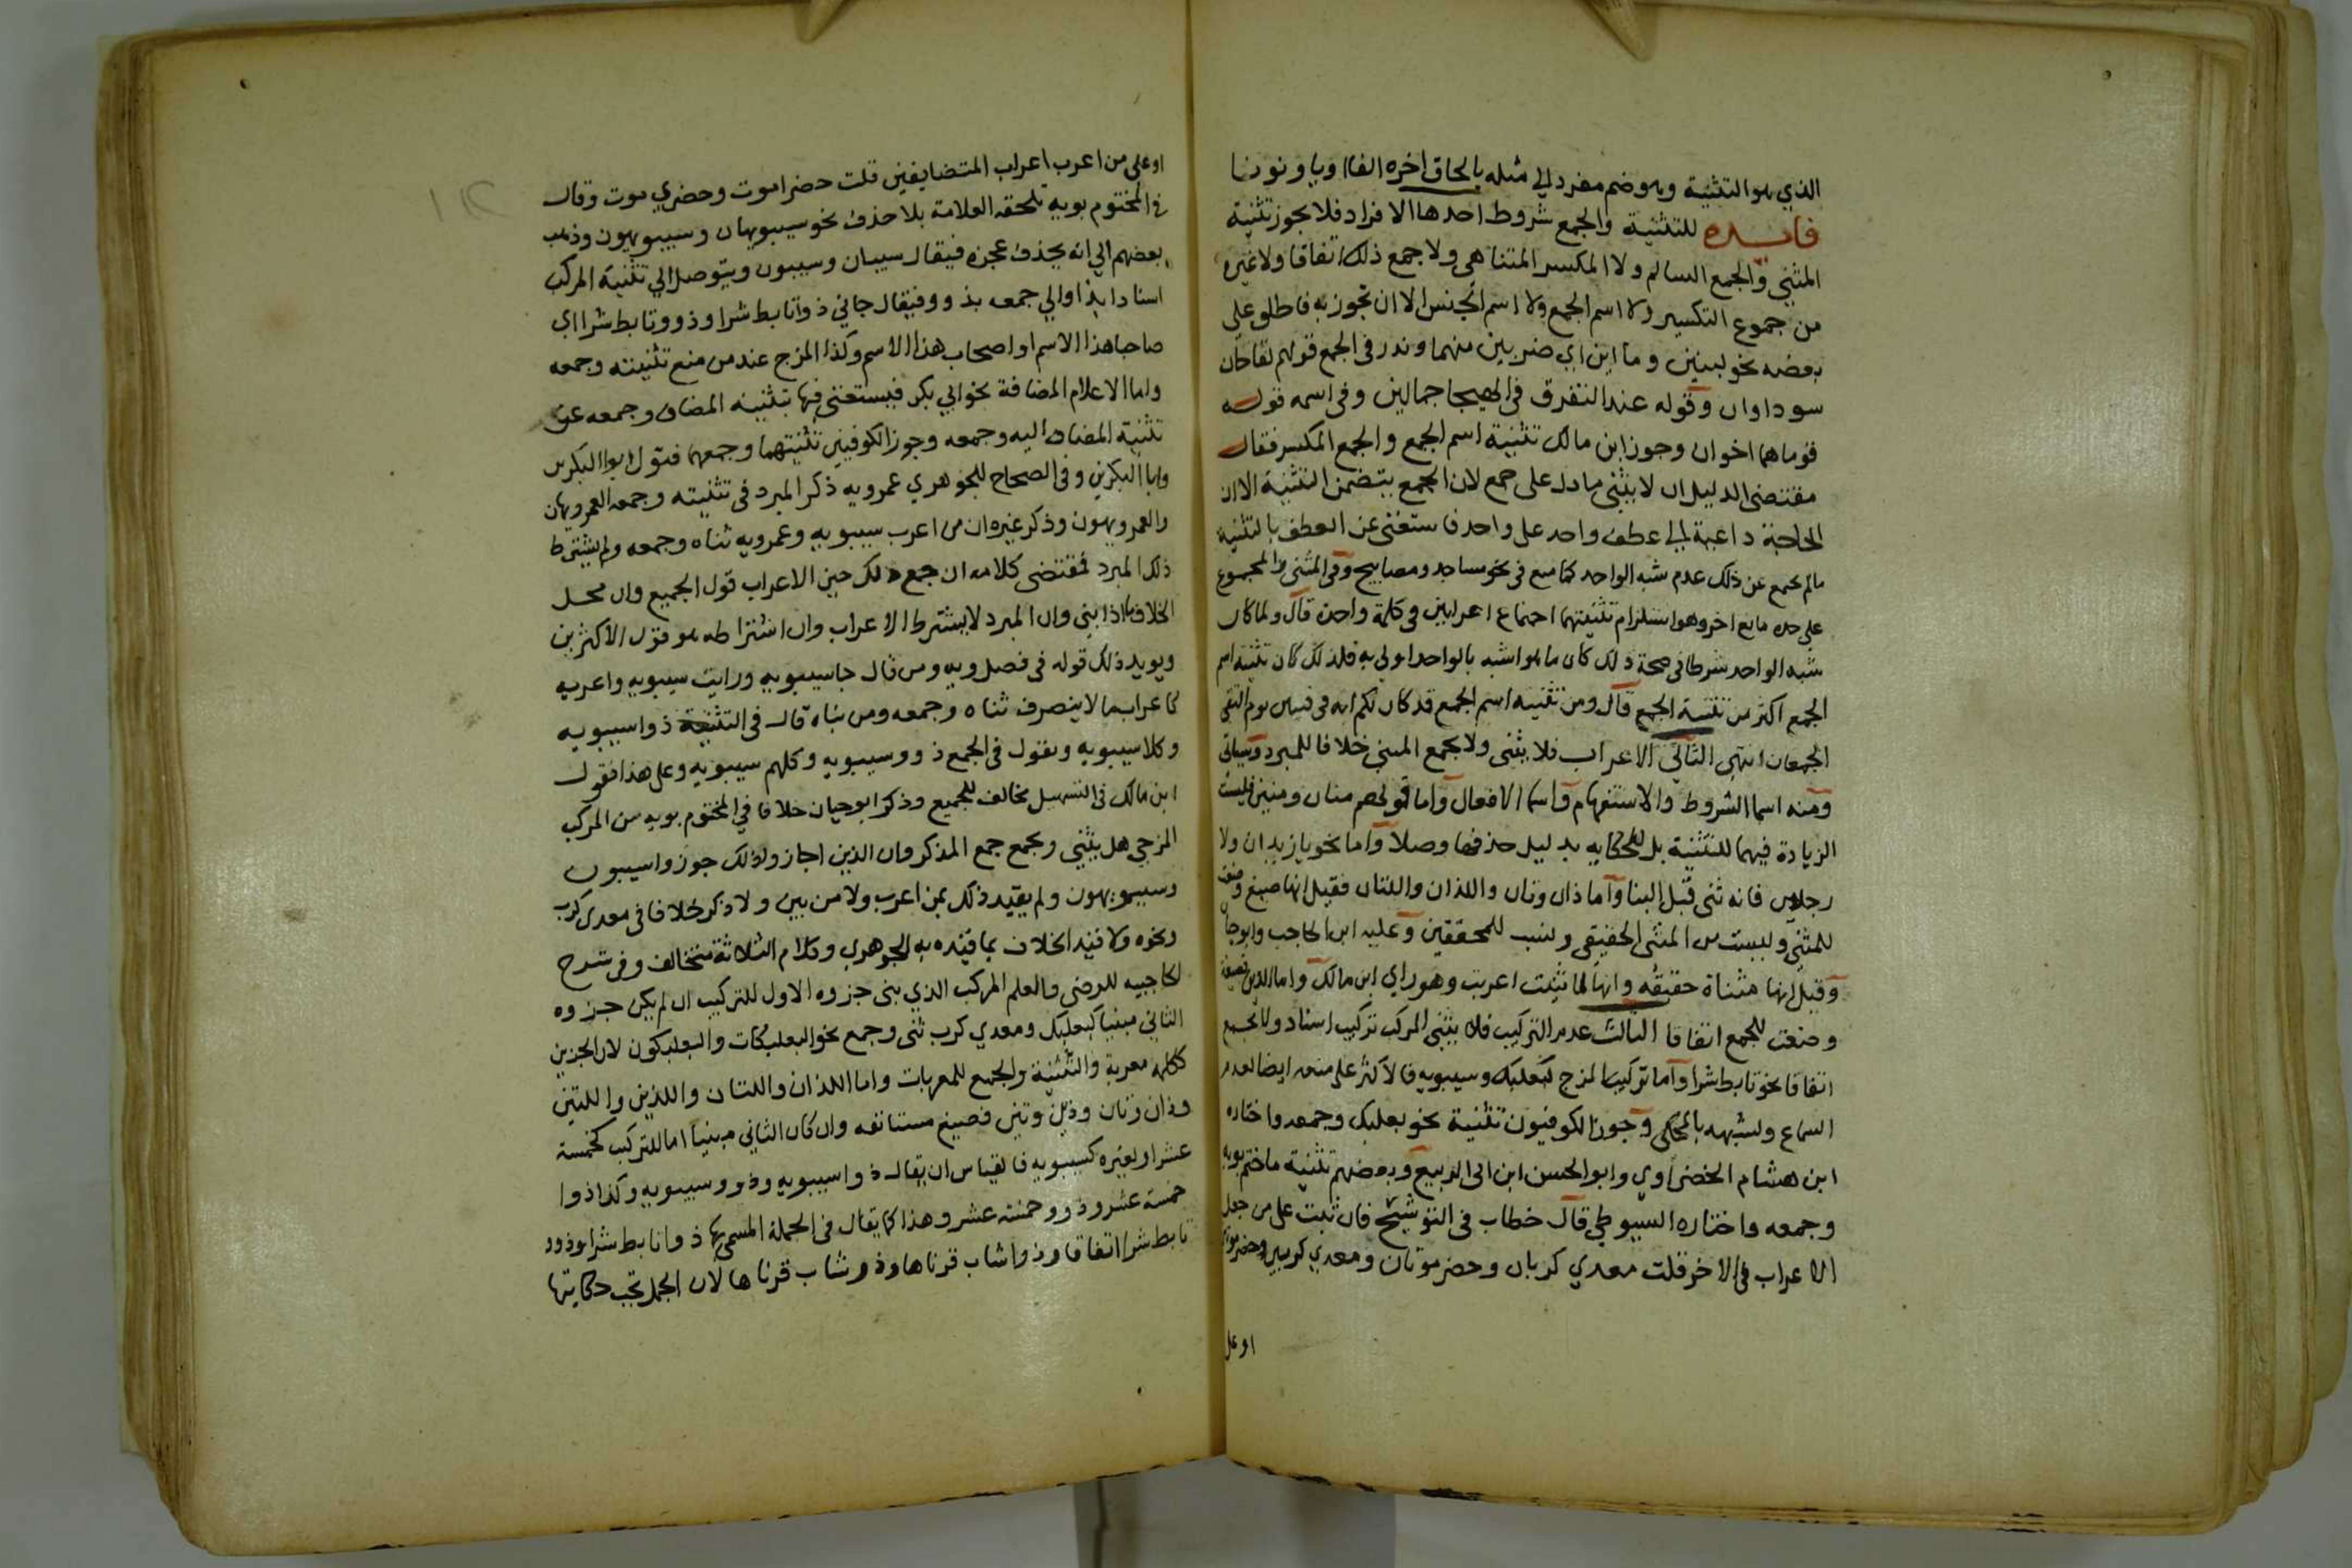 الذي هو التثنية وهو ضم مفرد الي مثله بالحاق اخره الفا او يا ونونا
فايده للتثنية والجمع شروط احدها الافراد فلا يجوز تثنية
المثني والجمع السالم ولا المكسر المتناهي ولا جمع ذلك اتفاقا ولا غيره
من جموع التكسير ولا اسم الجمع ولا اسم الجنس الا ان تجوز به فاطلق علي
بعضه نحو لبنين وماابن اي ضربين منهما وندر في الجمع قولهم لقاحان
سوداوان وقوله عند التفرق في الهيجا جمالين وفي اسمه قوله
قوماهما اخوان وجوز ابن مالك تثنية اسم الجمع والجمع المكسر فقال
مقتضي الدليل ان لا يثني ما دل علي جمع لان الجمع يتضمن التثنية الا ان
الحاجة داعية الي عطف واحد علي واحد فاستغني عن العطف بالتثنية
مالم يمنع عن ذلك عدم شبه الواحد كما منع في نحو مساجد ومصابيح وفي المثني والمجموع
علي حده مانع اخر وهو استلزام تثنيتهما اجتماع اعرابين في كلمة واحدة قال ولما كان
شبه الواحد شرطا في صحة ذلك كان ما هو اشبه بالواحد اولي به فلذلك كان تثنية اسم
الجمع اكثر من تثنية الجمع قال ومن تثنية اسم الجمع قد كان لكم اية في فيتين يوم التقي
الجمعان انتهي الثاني الاعراب فلا يثني ولا يجمع المبني خلافا للمبرد وسياتي
ومنه اسما الشروط والاستفهام واسما الافعال واما قولهم منان ومنين فليست
الزيادة فيهما للتثنية بل للحكاية بدليل حذفها وصلا واما نحو يا زيدان ولا
رجلين فانه ثني قبل البنا واما ذان وتان واللذان واللتان فقيل انها صيغ وضعت
للمثني وليست من المثني الحقيقي ونسب للمحققين وعليه ابن الحاجب وابوحيان
وقيل انها مثناة حقيقه وانها لما ثنيت اعربت وهو راي ابن مالك واما الذين فصيغة
وضعت للجمع اتفاقا الثالث عدم التركيب فلا يثني المركب تركيب اسناد ولا يجمع
اتفاقا نحو تابط شرا واما تركيب المزج كبعلبك وسيبويه فالاكثر علي منعه ايضا لعدم
السماع ولشبهه بالمحكي وجوز الكوفيون تثنية نحو بعلبك وجمعه واختاره
ابن هشام الخضراوي وابو الحسن ابن ابي الربيع وبعضهم تثنية ما ختم بويه
وجمعه واختاره السيوطي قال خطاب في التوشيح فان ثنيت علي من جعل
الاعراب في الاخر قلت معدي كربان وحضرموتان ومعدي كربين وحضرموتين
او علي
او علي من اعرب اعراب المتضايفين قلت حضراموت وحضري موت وقال
في المختوم بويه تلحقه العلامة بلا حذف نحو سيبويهان وسيبويهون وذهب
بعضهم الي انه يحذف عجزه فيقال سيبان وسيبون ويتوصل الي تثنية المركب
اسنادا بذا اوالي جمعه بذوو فيقال جاني ذواتابط شرا وذووتابط شرا اي
صاحبا هذا الاسم او اصحاب هذا الاسم وكذا المزج عند من منع تثنيته وجمعه
واما الاعلام المضافة نحو ابي بكر فيستغني فيها بتثنية المضاف وجمعه عن
تثنية المضاف اليه وجمعه وجوز الكوفيين تثنيتهما وجمعهما فتقول ابوا البكرين
وابا البكرين وفي الصحاح للجوهري عمرويه ذكر المبرد في تثنيته وجمعه العمرويهان
والعمرويهون وذكر غيره ان من اعرب سيبويه وعمرويه ثناه وجمعه ولم يشترط
ذلك المبرد فمقتضي كلامه ان جمع ذلك حين الاعراب قول الجميع وان محل
الخلاف ما اذا بني وان المبرد لا يشترط الاعراب وان اشتراطه هو قول الاكثرين
ويويد ذلك قوله في فصل ويه ومن قال جاسيبويه ورايت سيبويه واعربه
كاعراب ما لا ينصرف ثناه وجمعه ومن بناه قال في التثنية ذواسيبويه
وكلاسيبويه ويقول في الجمع ذووسيبويه وكلهم سيبويه وعلي هذا فقول
ابن مالك في التسهيل مخالف للجميع وذكر ابوحيان خلافا في المختوم بويه من المركب
المزجي هل يثني ويجمع جمع المذكر وان الذين اجازوا ذلك جوزوا سيبون
وسيبويهون ولم يقيد ذلك بمن اعرب ولا من بني ولا ذكر خلافا في معدي كرب
ونحوه ولا قيد الخلاف بما قيده به الجوهري وكلام الثلاثة متخالف وفي شرح
الحاجبيه للرضي والعلم المركب الذي بني جزوه الاول للتركيب ان لم يكن جزوه
الثاني مبنيا كبعلبك ومعدي كرب ثني وجمع نحو البعلبكات والبعلبكون لان الجزين
ككلمه معربة والتثنية والجمع للمعربات واما اللذان واللتان واللذين واللتين
وذان وتان وذين وتين فصيغ مستانفه وان كان الثاني مبنيا اما للتركيب كخمسة
عشر او لغيره كسيبويه فالقياس ان يقال ذواسيبويه وذووسيبويه وكذا ذوا
خمسة عشر وذووخمسة عشر وهذا كما يقال في الجملة المسمي بها ذواتابط شرا وذوو
تابط شرا اتفاقا وذواشاب قرناها وذووشاب قرناها لان الجمل تجب حكايتها